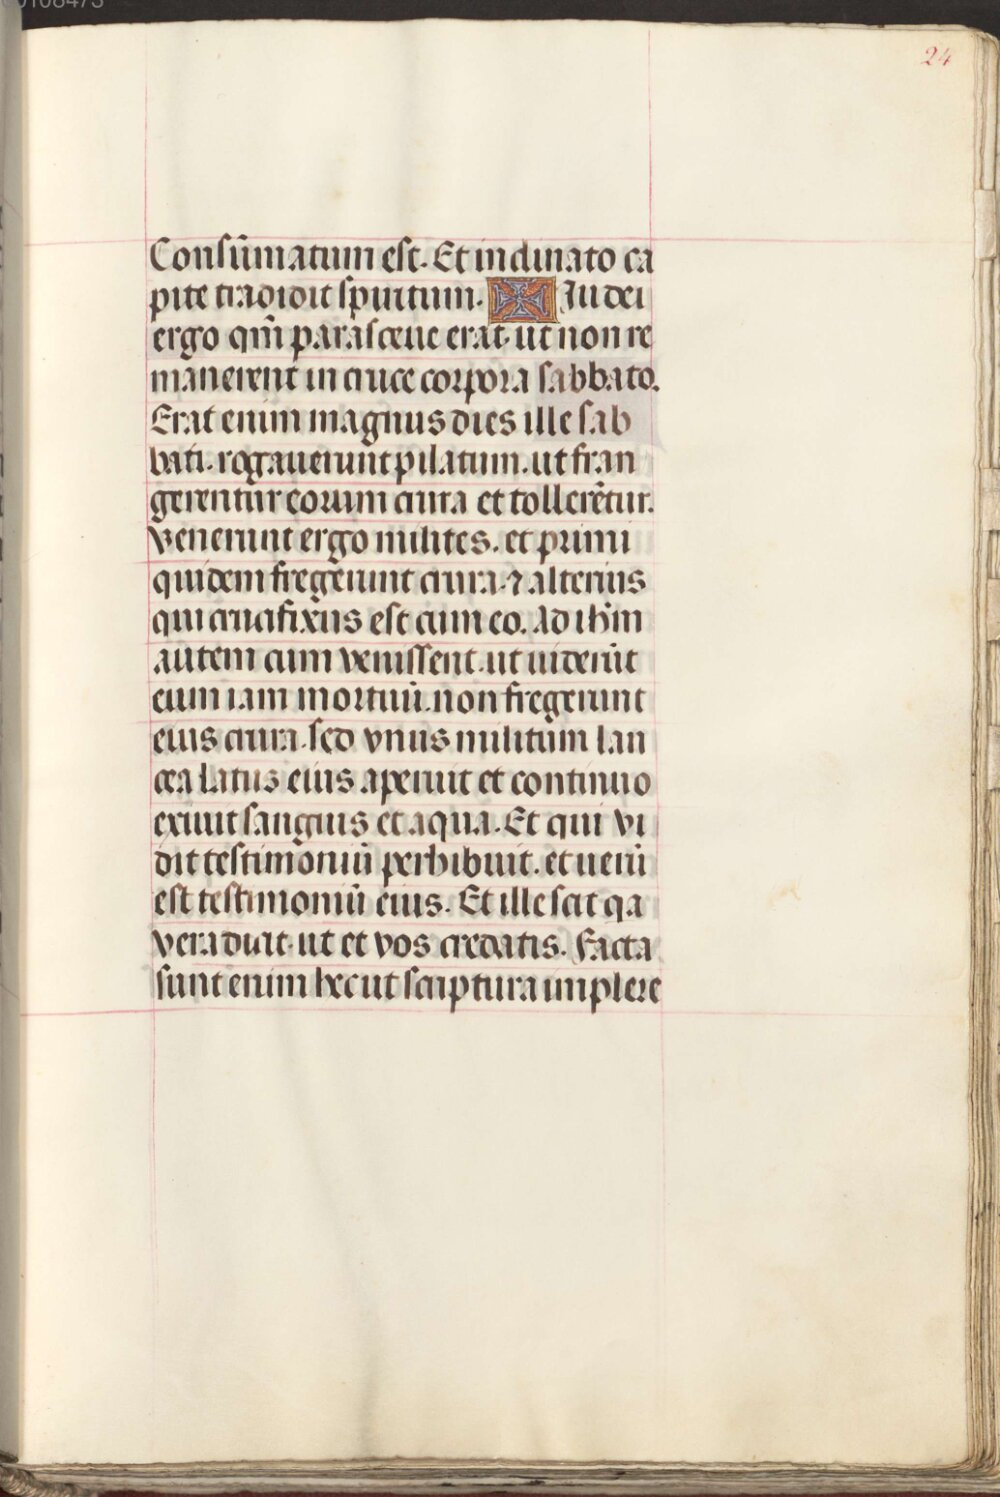 24
Consūmatum est. Et inclinato ca
pite tradidit spiritum. Iudei
ergo qm̄ parasceue erat. ut non re
manerent in cruce corpora sabbato.
Erat enim magnus dies ille sab
bati. rogauerunt pilatum. ut fran
gerentur eorum crura et tollerētur.
venerunt ergo milites. et primi
quidem fregerunt crura. ⁊ alterius
qui crucifixus est cum eo. Ad ihm̄
autem cum venissent. ut uiderūt
eum iam mortuū. non fregerunt
eius crura. sed vnus militum lan
cea latus eius aperuit et continuo
exiuit sanguis et aqua. Et qui vi
dit testimoniū perhibuit. et uerū
est testimoniū eius. Et ille scit qa
vera dicit. ut et vos credatis. Facta
sunt enim hec ut scriptura implere